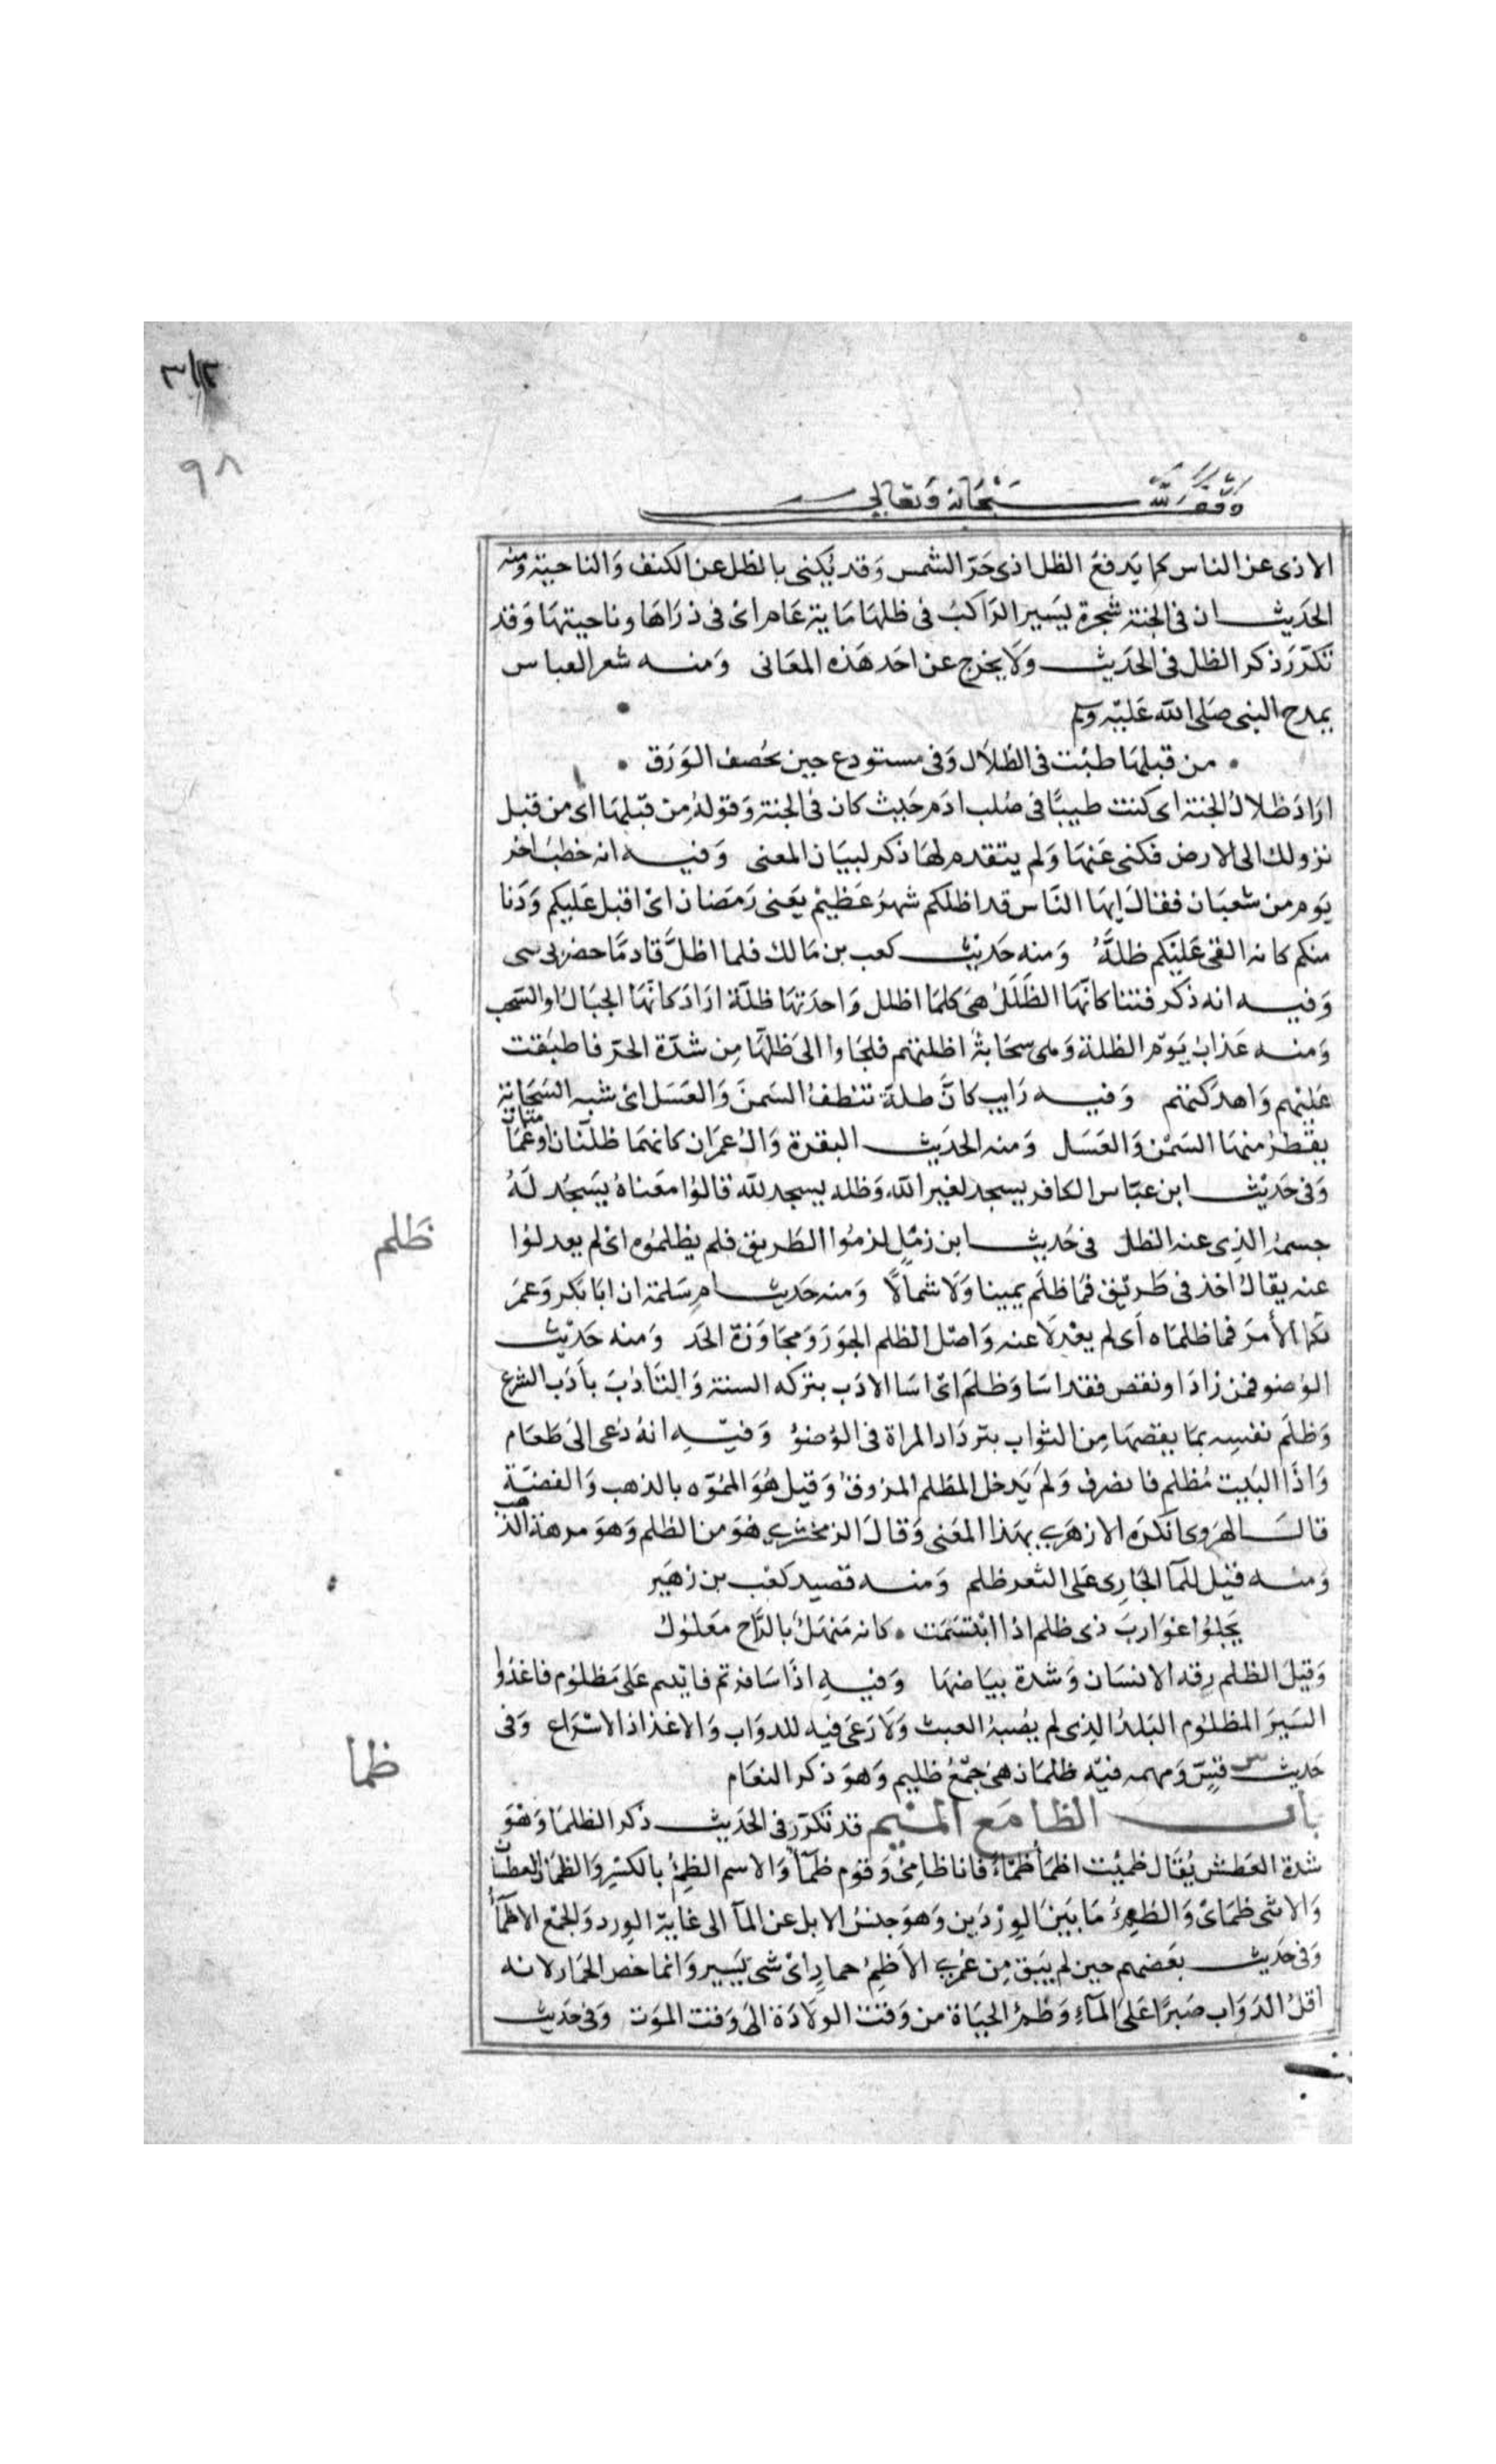 ٩٨
وقف لله سبحانه وتعالى
الاذى عن الناس كما يَدفعُ الظل اذى حَرّ الشمس وَقد يُكنى بالظل عن الكنف وَالناحية ومنه
الحَديث ان فى الجنة شجرة يسَير الرَاكبُ فى ظلهَا مَاية عَام اىْ فى ذرَاهَا وناحيتهَا وَقد
تكرّرَ ذكر الظل فى الحَديث وَلَا يخرج عن احَد هَذه المعَانى وَمنه شعر العباس
يمدح النبى صَلى الله عَليْه وسلم
من قبلهَا طبْت فى الظلَال وَفى مستودع حين يخصف الوَرَق
ارَادَ ظلالُ الجنة اى كنت طيبًا فى صُلب ادَم حَيث كان فى الجنة وَقولهُ مِن قبْلهَا اى من قبل
نزولك الى الارض فكنى عَنهَا وَلم يتقدم لهَا ذكر لبيَان المعنى وَفيه انه خطبَ اخر
يَوم من شعبَان فقالَ ايهَا النَّاس قد اظلكم شهرُ عَظيمُ يعَنى رَمَضان اىْ اقبل عَليكم وَدَنا
منكم كانه القى عَليْكم ظلَّهُ وَمنه حَديْث كعب بن مَالك فلما اظلَّ قادمًا حضرنى بثى
وَفيه انه ذكر فتنا كانَّهَا الظُلَلُ هىَ كلمَا اظلل وَاحدَتهَا ظلّة ارَادَ كانّهَا الجبَالُ او السّحب
وَمنه عَذابُ يَوْم الظلة وَهى سحَابةُ اظلتهم فلجَاوا الىَ ظلّهَا مِن شدّة الحرّ فاطبقت
عَليْهم وَاهلكتهم وَفيه رَايت كانَّ ظلة تنطفُ السَمنَ وَالعَسَل اىْ شبه السَحَابة
يقطرُ منهَا السَمْن وَالعَسَل وَمنه الحَديث البقرة وَالُ عمرَان كانهمَا ظلّتان او غمَامتان
وَفى حَديْث ابن عبّاس الكافر يسجد لغير الله وَظله يسجد لله قالوُا معناهُ يَسجُد لَهُ
جسمهُ الذِى عنه الظل فى حَديث ابن زمْلٍ لزمُوا الطَريق فلم يظلموُه اىْ لم يعدلوُا
ظَلم
عنه يقالُ اخذ فى طَريْق فمَا ظلَم يمينا وَلَا شمالًا وَمنه حَديث ام سَلمة ان ابَا بَكر وَعمَر
ثكما الأمرَ فما ظلمَاه اَى لم يعْدلَا عنه وَاصْل الظلم الجوَرَ وَمجَاوَزة الحَد وَمنه حَديْث
الوُضو فمن زادَ او نقص فقد اسَا وَظلمَ اىْ اسَا الادَب بتركه السنة وَالتَادُبَ باَدَب الشرع
وَظلَم نفسِه بمَا نقصهَا مِن الثواب بترْدَاد المراة فى الوُضوُ وَفيْهِ انهُ دُعى الىَ طَعَام
وَاذَا البَيت مُظلم فانصرف وَلمْ يَدخل المظلم المزوقُ وَقيل هُوَ المُمَوّه بالذهب وَالفضَة
قالَ الهرَوى انكرَه الازهَرى بهَذا المعَنى وَقالَ الزمخشرى هُوَ من الظلم وَهوَ موهة الذهب
وَمنه قيْل للمآ الجَارِى عَلى الثغر ظلم وَمنه قصيد كعْب بن زهَير
يَجلوُا غوَاربَ ذى ظلم اذا ابْتسَمَت كانه مَنهَلُ بالرَّاح مَعلوُلُ
وَقيلَ الظلم رِقة الانسَان وَشدة بيَاضهَا وَفيهِ اذَا سَافرتم فاتيتم عَلى مَظلوُم فاغذوُا
السَيَر المظلوُم البَلدُ الذِى لم يصُبهُ الغيث وَلَا رَعَى فيه للدوَاب وَالاغذاذ الاسْرَاع وَفى
حَديث قسٍ وَمهمه فيْه ظلمَان هىَ جَمْعُ ظليم وَهوَ ذكر النعَام
باب الظا مَع الميم قد تكرّر فى الحَديث ذكر الظمَا وَهْوَ
ظما
شدة العَطش يُقَال ظميْت اظمَأ ظمَاءً فانا ظامِىُ وَقوُم ظمَآُ وَالاسم الظِمؤُ بالكسْر وَالظمَان العطشان
وَالانثى ظمَاىْ وَالظِمؤُ مَا بَيَن الوِرْدَين وَهوَ حبسُ الابل عن المآ الى غايَة الوِرد وَالجمْع الاظمَآُ
وَفى حَديث بعَضهم حين لم يَبق مِن عُمرى الا ظِمؤُ حمارٍ اىْ شىْ يَسير وَانما خص الحمَار لانه
اقلُ الدَوَاب صَبرًا عَلىَ المآءِ وَظمؤُ الحيَاة من وَقت الولادَة الىَ وَقت الموَت وَفى حَديث